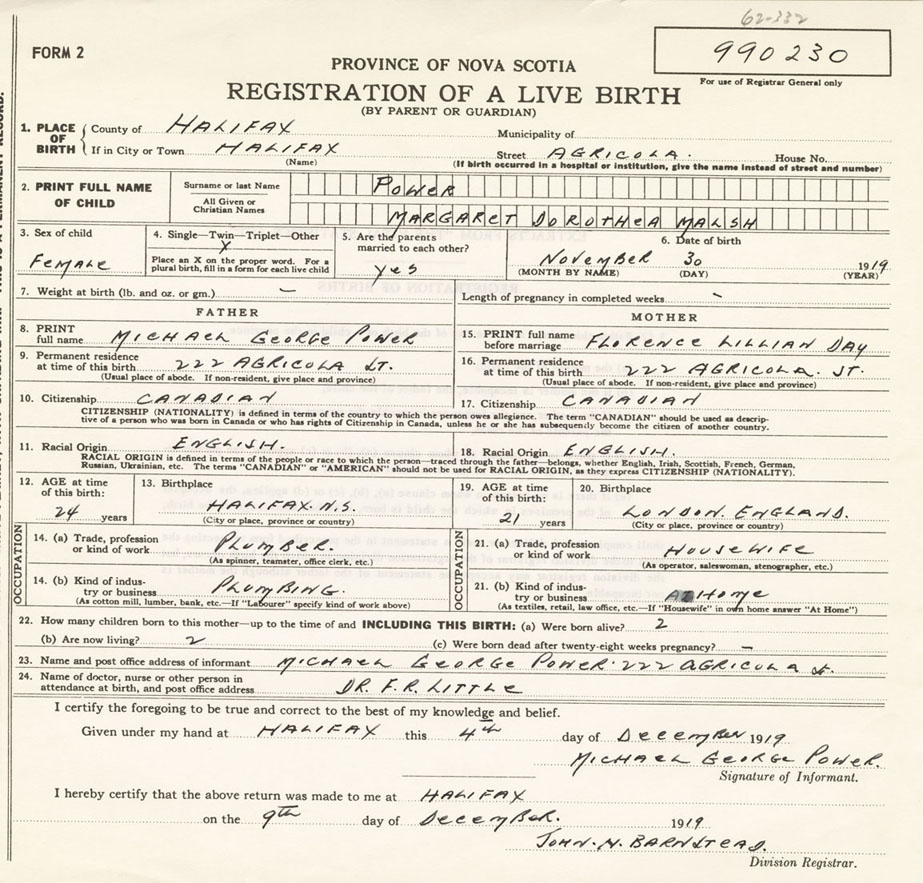 62-332
990230
FORM 2
PROVINCE OF NOVA SCOTIA
For use of Registrar General only
REGISTRATION OF A LIVE BIRTH
(BY PARENT OR GUARDIAN)
1. PLACE OF BIRTH County of HALIFAX Municipality of
If in City or Town HALIFAX Street AGRICOLA. House No.
(Name) (If birth occurred in a hospital or institution, give the name instead of street and number)
2. PRINT FULL NAME OF CHILD Surname or last Name POWER
All Given or Christian Names MARGARET DOROTHEA MALSH
3. Sex of child FEMALE
4. Single—Twin—Triplet—Other
X
Place an X on the proper word. For a
plural birth, fill in a form for each live child
5. Are the parents
married to each other?
yes
6. Date of birth
NOVEMBER 30 1919
(MONTH BY NAME) (DAY) (YEAR)
7. Weight at birth (lb. and oz. or gm.) — Length of pregnancy in completed weeks -
FATHER
8. PRINT
full name MICHAEL GEORGE POWER
9. Permanent residence
at time of this birth 222 AGRICOLA ST.
(Usual place of abode. If non-resident, give place and province)
10. Citizenship CANADIAN
MOTHER
15. PRINT full name
before marriage FLORENCE LILLIAN DAY
16. Permanent residence
at time of this birth 222 AGRICOLA. ST.
(Usual place of abode. If non-resident, give place and province)
17. Citizenship CANADIAN
CITIZENSHIP (NATIONALITY) is defined in terms of the country to which the person owes allegiance. The term "CANADIAN" should be used as descrip-
tive of a person who was born in Canada or who has rights of Citizenship in Canada, unless he or she has subsequently become the citizen of another country.
11. Racial Origin ENGLISH. 18. Racial Origin ENGLISH.
RACIAL ORIGIN is defined in terms of the people or race to which the person—traced through the father—belongs, whether English, Irish, Scottish, French, German,
Russian, Ukrainian, etc. The terms "CANADIAN" or "AMERICAN" should not be used for RACIAL ORIGIN, as they express CITIZENSHIP (NATIONALITY).
12. AGE at time
of this birth:
24 years
13. Birthplace
HALIFAX. N.S.
(City or place, province or country)
19. AGE at time
of this birth:
21 years
20. Birthplace
LONDON. ENGLAND.
(City or place, province or country)
OCCUPATION
14. (a) Trade, profession
or kind of work PLUMBER.
(As spinner, teamster, office clerk, etc.)
14. (b) Kind of indus-
try or business PLUMBING.
(As cotton mill, lumber, bank, etc.—If "Labourer" specify kind of work above)
OCCUPATION
21. (a) Trade, profession
or kind of work HOUSEWIFE
(As operator, saleswoman, stenographer, etc.)
21. (b) Kind of indus-
try or business AT HOME
(As textiles, retail, law office, etc.—If "Housewife" in own home answer "At Home")
22. How many children born to this mother—up to the time of and INCLUDING THIS BIRTH: (a) Were born alive? 2
(b) Are now living? 2 (c) Were born dead after twenty-eight weeks pregnancy? —
23. Name and post office address of informant MICHAEL GEORGE POWER. 222 AGRICOLA St.
24. Name of doctor, nurse or other person in
attendance at birth, and post office address DR. F.R. LITTLE
I certify the foregoing to be true and correct to the best of my knowledge and belief.
Given under my hand at HALIFAX this 4th day of DECEMBER 1919
MICHAEL GEORGE POWER.
Signature of Informant.
I hereby certify that the above return was made to me at HALIFAX
on the 9th day of DECEMBER. 1919
JOHN. H. BARNSTEAD.
Division Registrar.